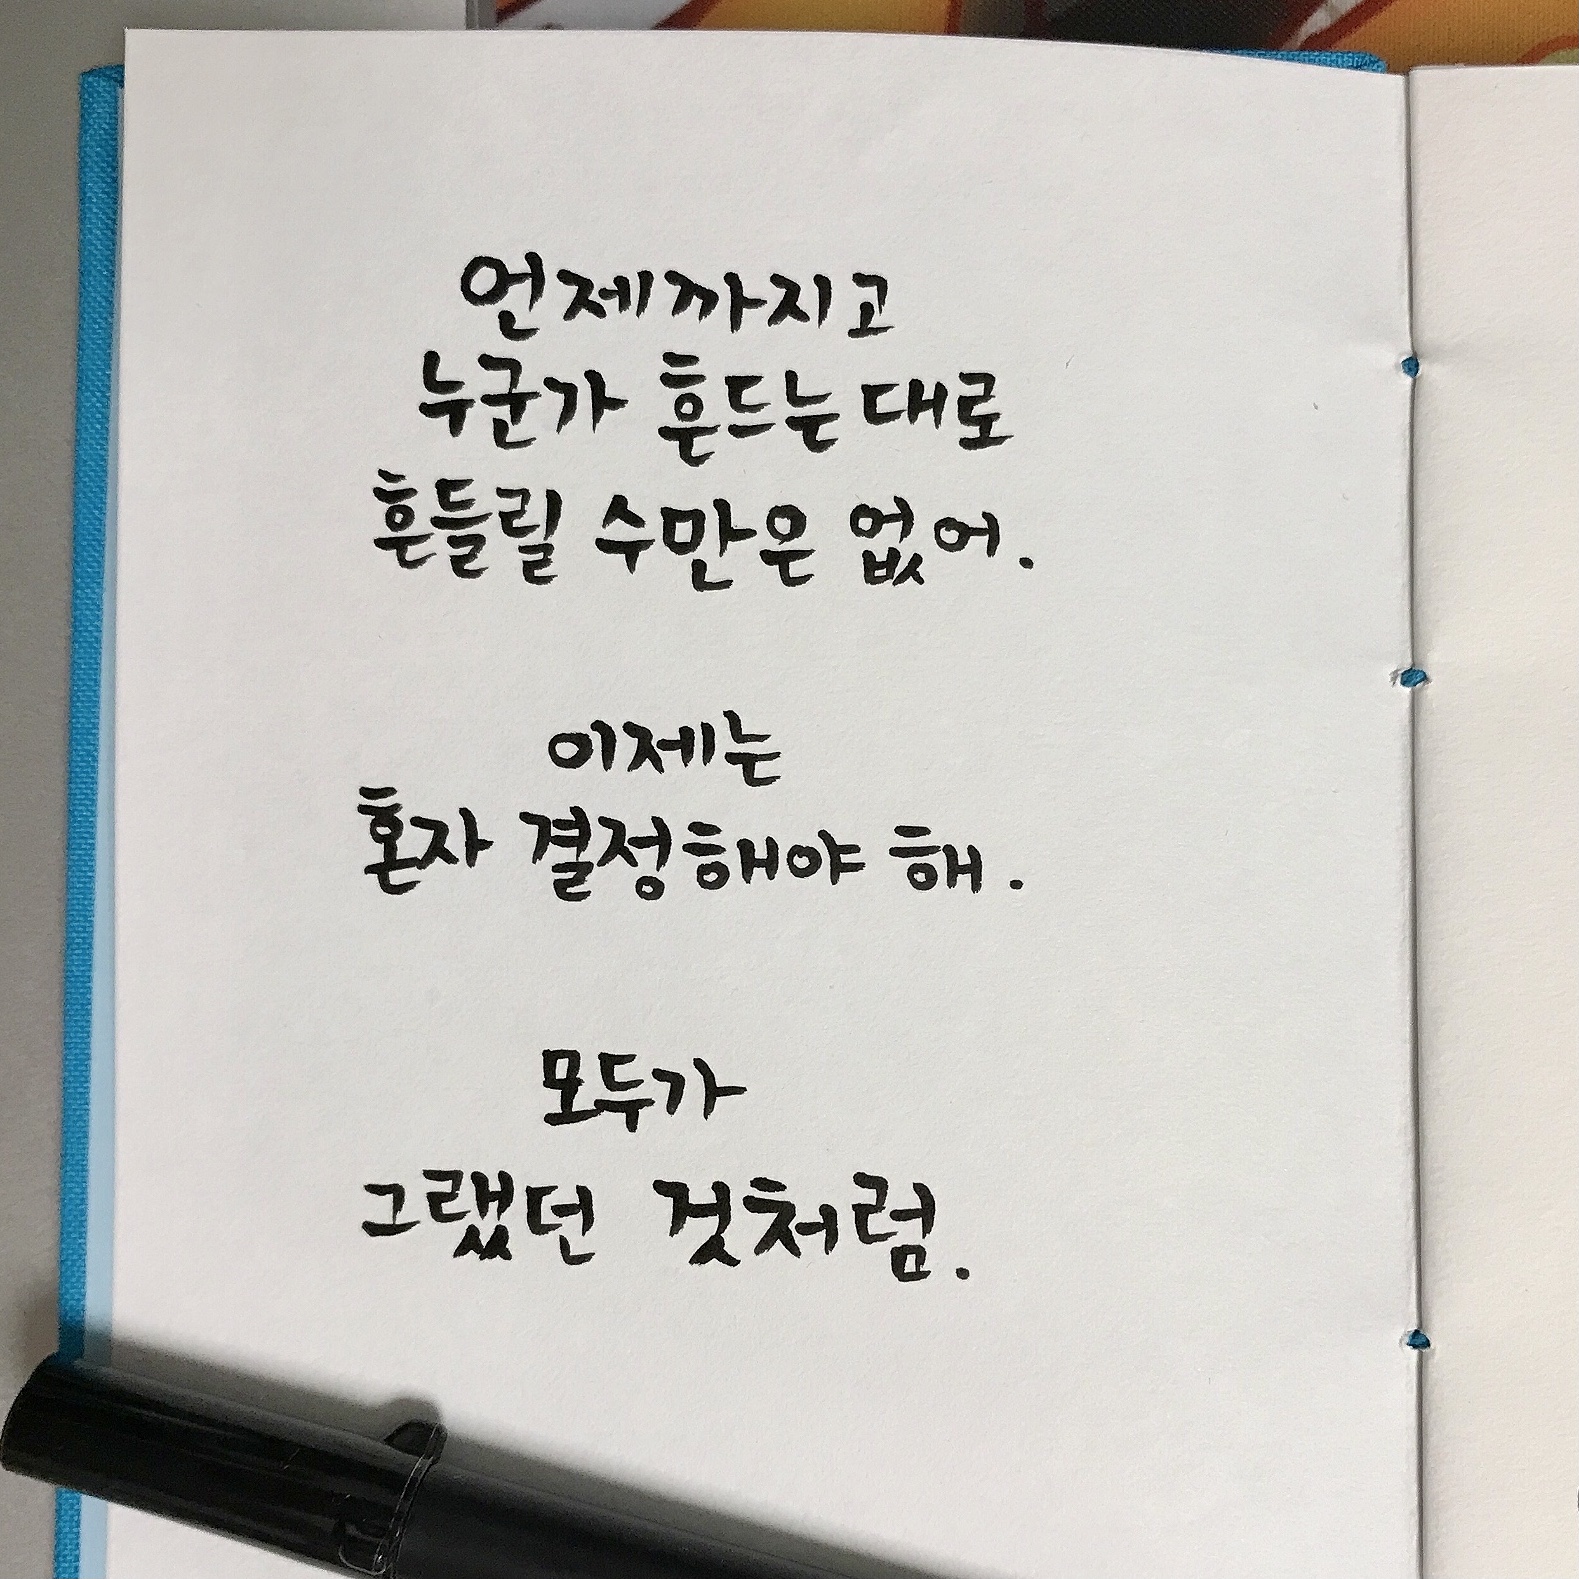 언제까지고
누군가 흔드는대로
흔들릴 수만은 없어.
이제는
혼자 결정해야 해.
모두가
그랬던 것처럼.